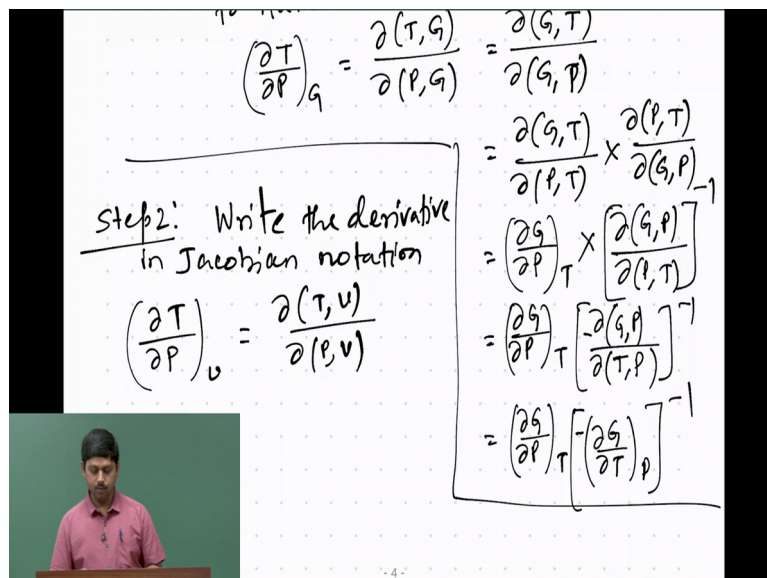 (∂T/∂P)_G = ∂(T,G)/∂(P,G) = ∂(G,T)/∂(G,P)
= ∂(G,T)/∂(P,T) × ∂(P,T)/∂(G,P)
= (∂G/∂P)_T × [∂(G,P)/∂(P,T)]^-1
= (∂G/∂P)_T [-∂(G,P)/∂(T,P)]^-1
= (∂G/∂P)_T [-(∂G/∂T)_P]^-1
Step2: Write the derivative
in Jacobian notation
(∂T/∂P)_υ = ∂(T,υ)/∂(P,υ)
- 4 -